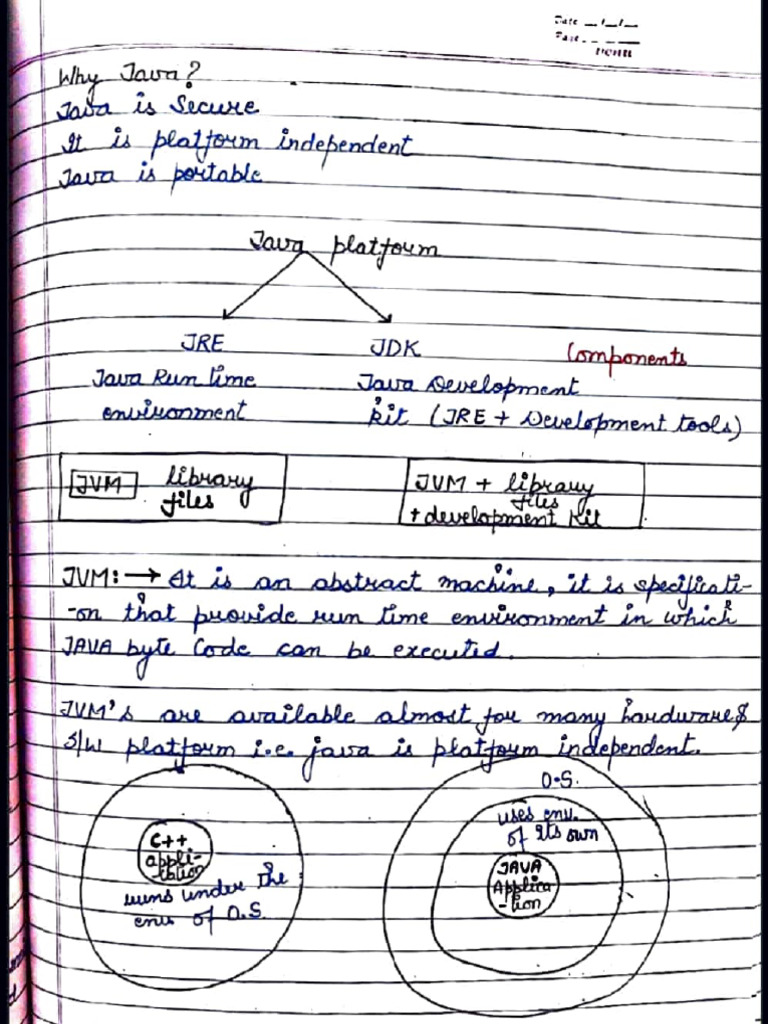 Date __/__/__
Page
Why Java?
Java is Secure
It is platform independent
Java is portable
Java platform
JRE JDK Components
Java Run time Java Development
environment kit (JRE + Development tools)
JVM library files
JVM + library files + development kit
JVM: → It is an abstract machine, it is specificati-
-on that provide run time environment in which
JAVA byte Code can be executed.
JVM's are available almost for many hardware &
S/W platform i.e. java is platform independent.
C++
appli-
cation
runs under the
env of O.S.
O.S.
uses env.
of its own
JAVA
Applica
-tion